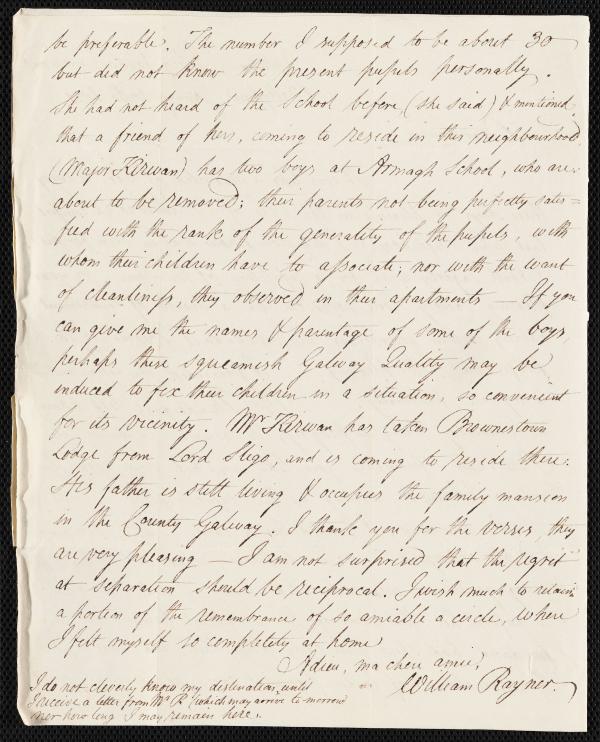 be preferable. The number I supposed to be about 30
but did not know the present pupils personally.
She had not heard of the School before, (she said) & mentioned,
that a friend of hers, coming to reside in this neighbourhood
(Major Kirwan) has two boys at Armagh School, who are
about to be removed; their parents not being perfectly satis=
fied with the rank of the generality of the pupils, with
whom their children have to associate; nor with the want
of cleanliness, they observed in their apartments — If you
can give me the names & parentage of some of the boys,
perhaps these squeamish Galway Quality may be
induced to fix their children in a situation, so convenient
for its vicinity. Mr Kirwan has taken Brownestown
Lodge from Lord Sligo, and is coming to reside there.
His father is still living & occupies the family mansion
in the County Galway. I thank you for the verses, they
are very pleasing — I am not surprised that the regret
at separation should be reciprocal. I wish much to retain
a portion of the remembrance of so amiable a circle, where
I felt myself so completely at home
Adieu, ma chere amie,
William Rayner.
I do not cleverly know my destination, until
I receive a letter from Mr R. (which may arrive to-morrow
nor how long I may remain here.